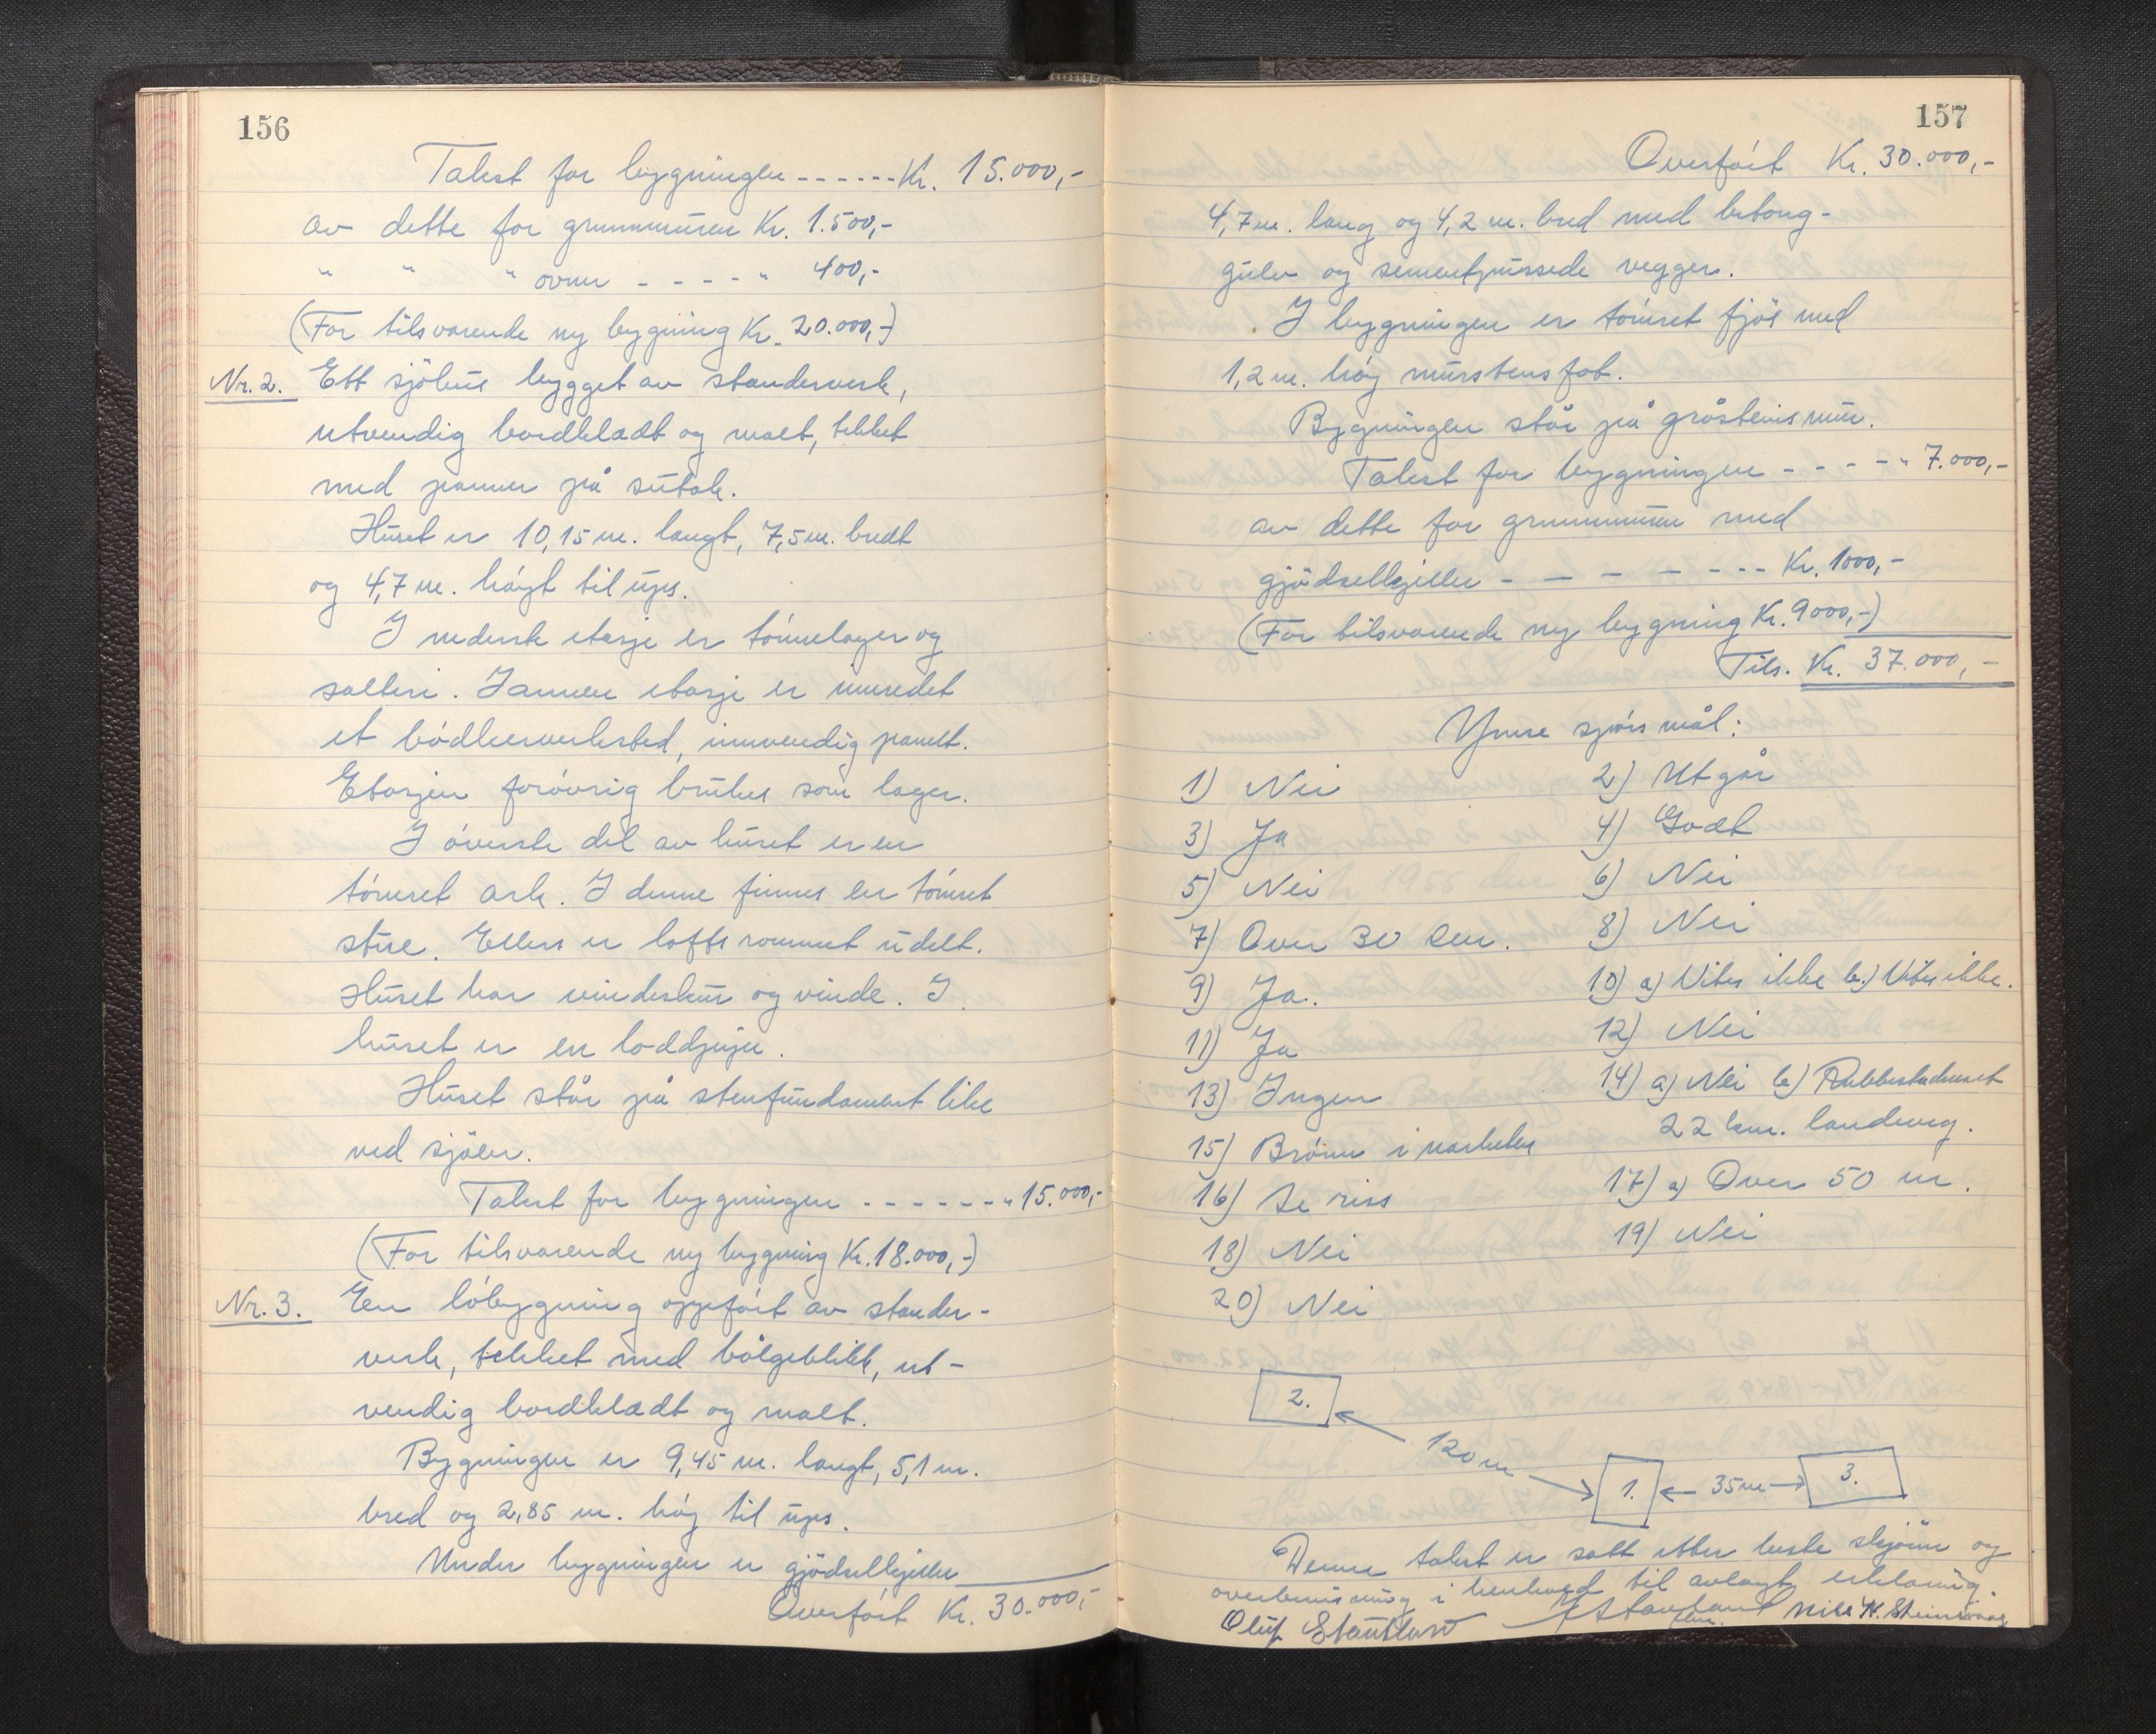 156
Takst for bygningen ------ Kr. 15.000,-
av dette for grunnmuren Kr. 1.500,-
" " " ovner - - - - " 400,-
(For tilsvarende ny bygning Kr. 20.000,-)
Nr. 2. Ett sjöhus bygget av standerverk,
utvendig bordklædt og malt, tekket
med panner på sutak.
Huset er 10,15 m. langt, 7,5 m. bredt
og 4,7 m. höigt til ups.
I nederste etasje er tönnelager og
salteri. I annen etasje er innredet
et bödkerverksted, innvendig panelt.
Etasjen forövrig brukes som lager.
I överste del av huset er en
tömret ark. I denne finnes en tömret
stue. Ellers er loftsrommet udelt.
Huset har vindeskur og vinde. I
huset er en loddpipe.
Huset står på stenfundament like
ved sjöen.
Takst for bygningen - - - - - - - " 15.000,-
(For tilsvarende ny bygning Kr. 18.000,-)
Nr. 3. En löbygning oppfört av stander-
verk, tekket med bölgeblikk, ut-
vendig bordklædt og malt.
Bygningen er 9,45 m. langt, 5,1 m.
bred og 2,85 m. höy til ups.
Under bygningen er gjödselkjeller
Overfört Kr. 30.000,-
157
Overfört Kr. 30.000,-
4,7 m. lang og 4,2 m. bred med betong-
gulv og sementpussede vegger.
I bygningen er tömret fjös med
1,2 m. höy murstensfot.
Bygningen står på gråsteinsmur.
Takst for bygningen - - - - - " 7.000,-
av dette for grunnmuren med
gjödselkjeller - - - - - - - - Kr. 1000,-
(For tilsvarende ny bygning Kr. 9000,-)
Tils. Kr. 37.000,-
Ymse spörsmål:
1) Nei 2) Utgår
3) Ja 4) Godt
5) Nei 6) Nei
7) Over 30 cm. 8) Nei
9) Ja. 10) a) Vites ikke b.) Vites ikke.
11) Ja 12) Nei
13) Ingen 14) a) Nei b) Rubbestadneset
22 km. landveg.
15) Brönn i narheten
16) Se riss 17) a) Over 50 m.
18) Nei 19) Nei
20) Nei
2.
120 m
1. 35 m 3.
Denne takst er satt etter beste skjönn og
overbevisning i henhold til avlagt erklæring.
Oluf Stautland Nils K.